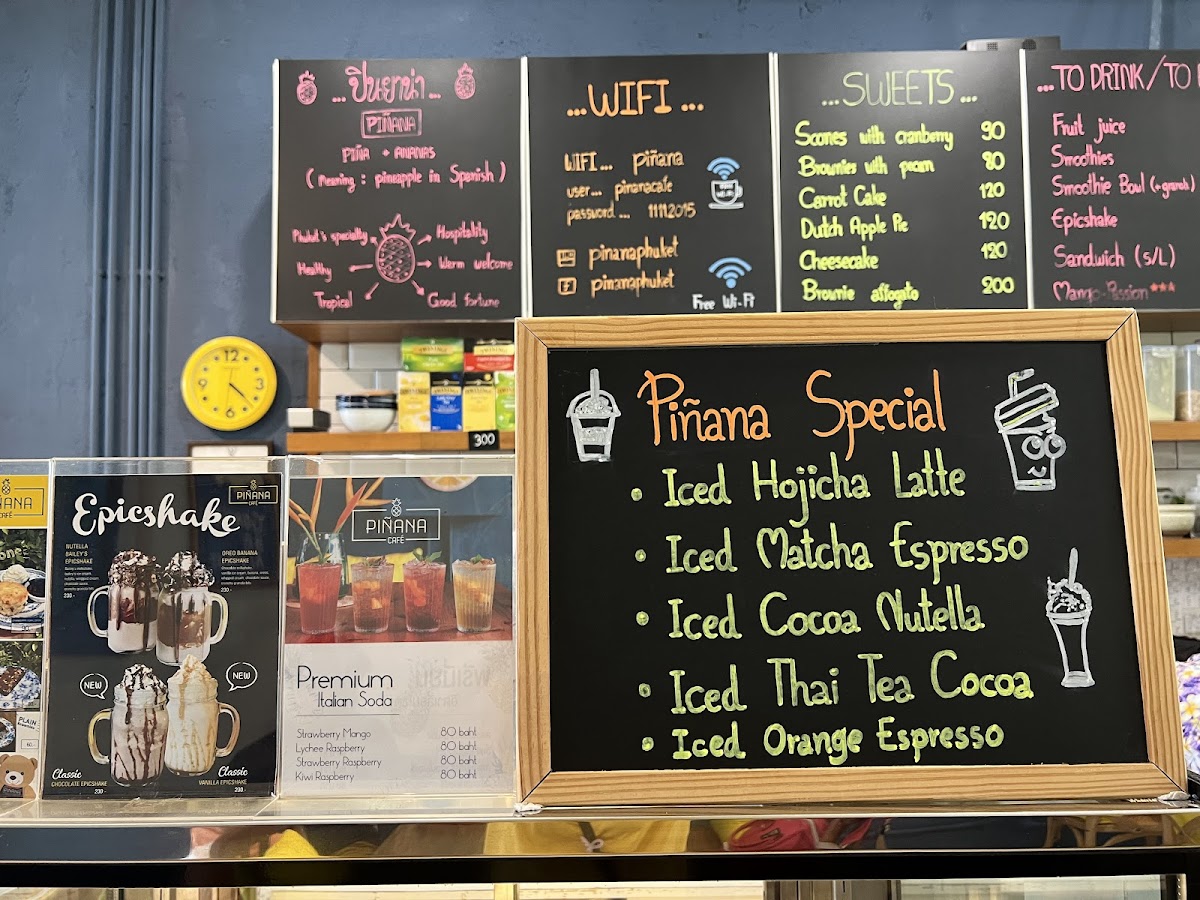 ...ปินยาน่า...
PIÑANA
PIÑA + ANANAS
(Meaning : pineapple in Spanish)
Phuket's specialty
Hospitality
Healthy
Warm welcome
Tropical
Good fortune
...WIFI...
WIFI... piñana
user... pinanacafe
password... 11112015
pinanaphuket
pinanaphuket
Free Wi-Fi
...SWEETS...
Scones with cranberry 90
Brownies with pecan 80
Carrot Cake 120
Dutch Apple Pie 120
Cheesecake 120
Brownie affogato 200
...TO DRINK/TO
Fruit juice
Smoothies
Smoothie Bowl (+granola)
Epicshake
Sandwich (S/L)
Mango-Passion***
12
3
6
9
TWININGS
300
Piñana Special
• Iced Hojicha Latte
• Iced Matcha Espresso
• Iced Cocoa Nutella
• Iced Thai Tea Cocoa
• Iced Orange Espresso
PLAIN
Epicshake
PIÑANA
CAFÉ
NUTELLA
BAILEY'S
EPICSHAKE
OREO BANANA
EPICSHAKE
NEW
NEW
Classic
CHOCOLATE EPICSHAKE
Classic
VANILLA EPICSHAKE
PIÑANA
CAFÉ
Premium
Italian Soda
Strawberry Mango 80 baht
Lychee Raspberry 80 baht
Strawberry Raspberry 80 baht
Kiwi Raspberry 80 baht